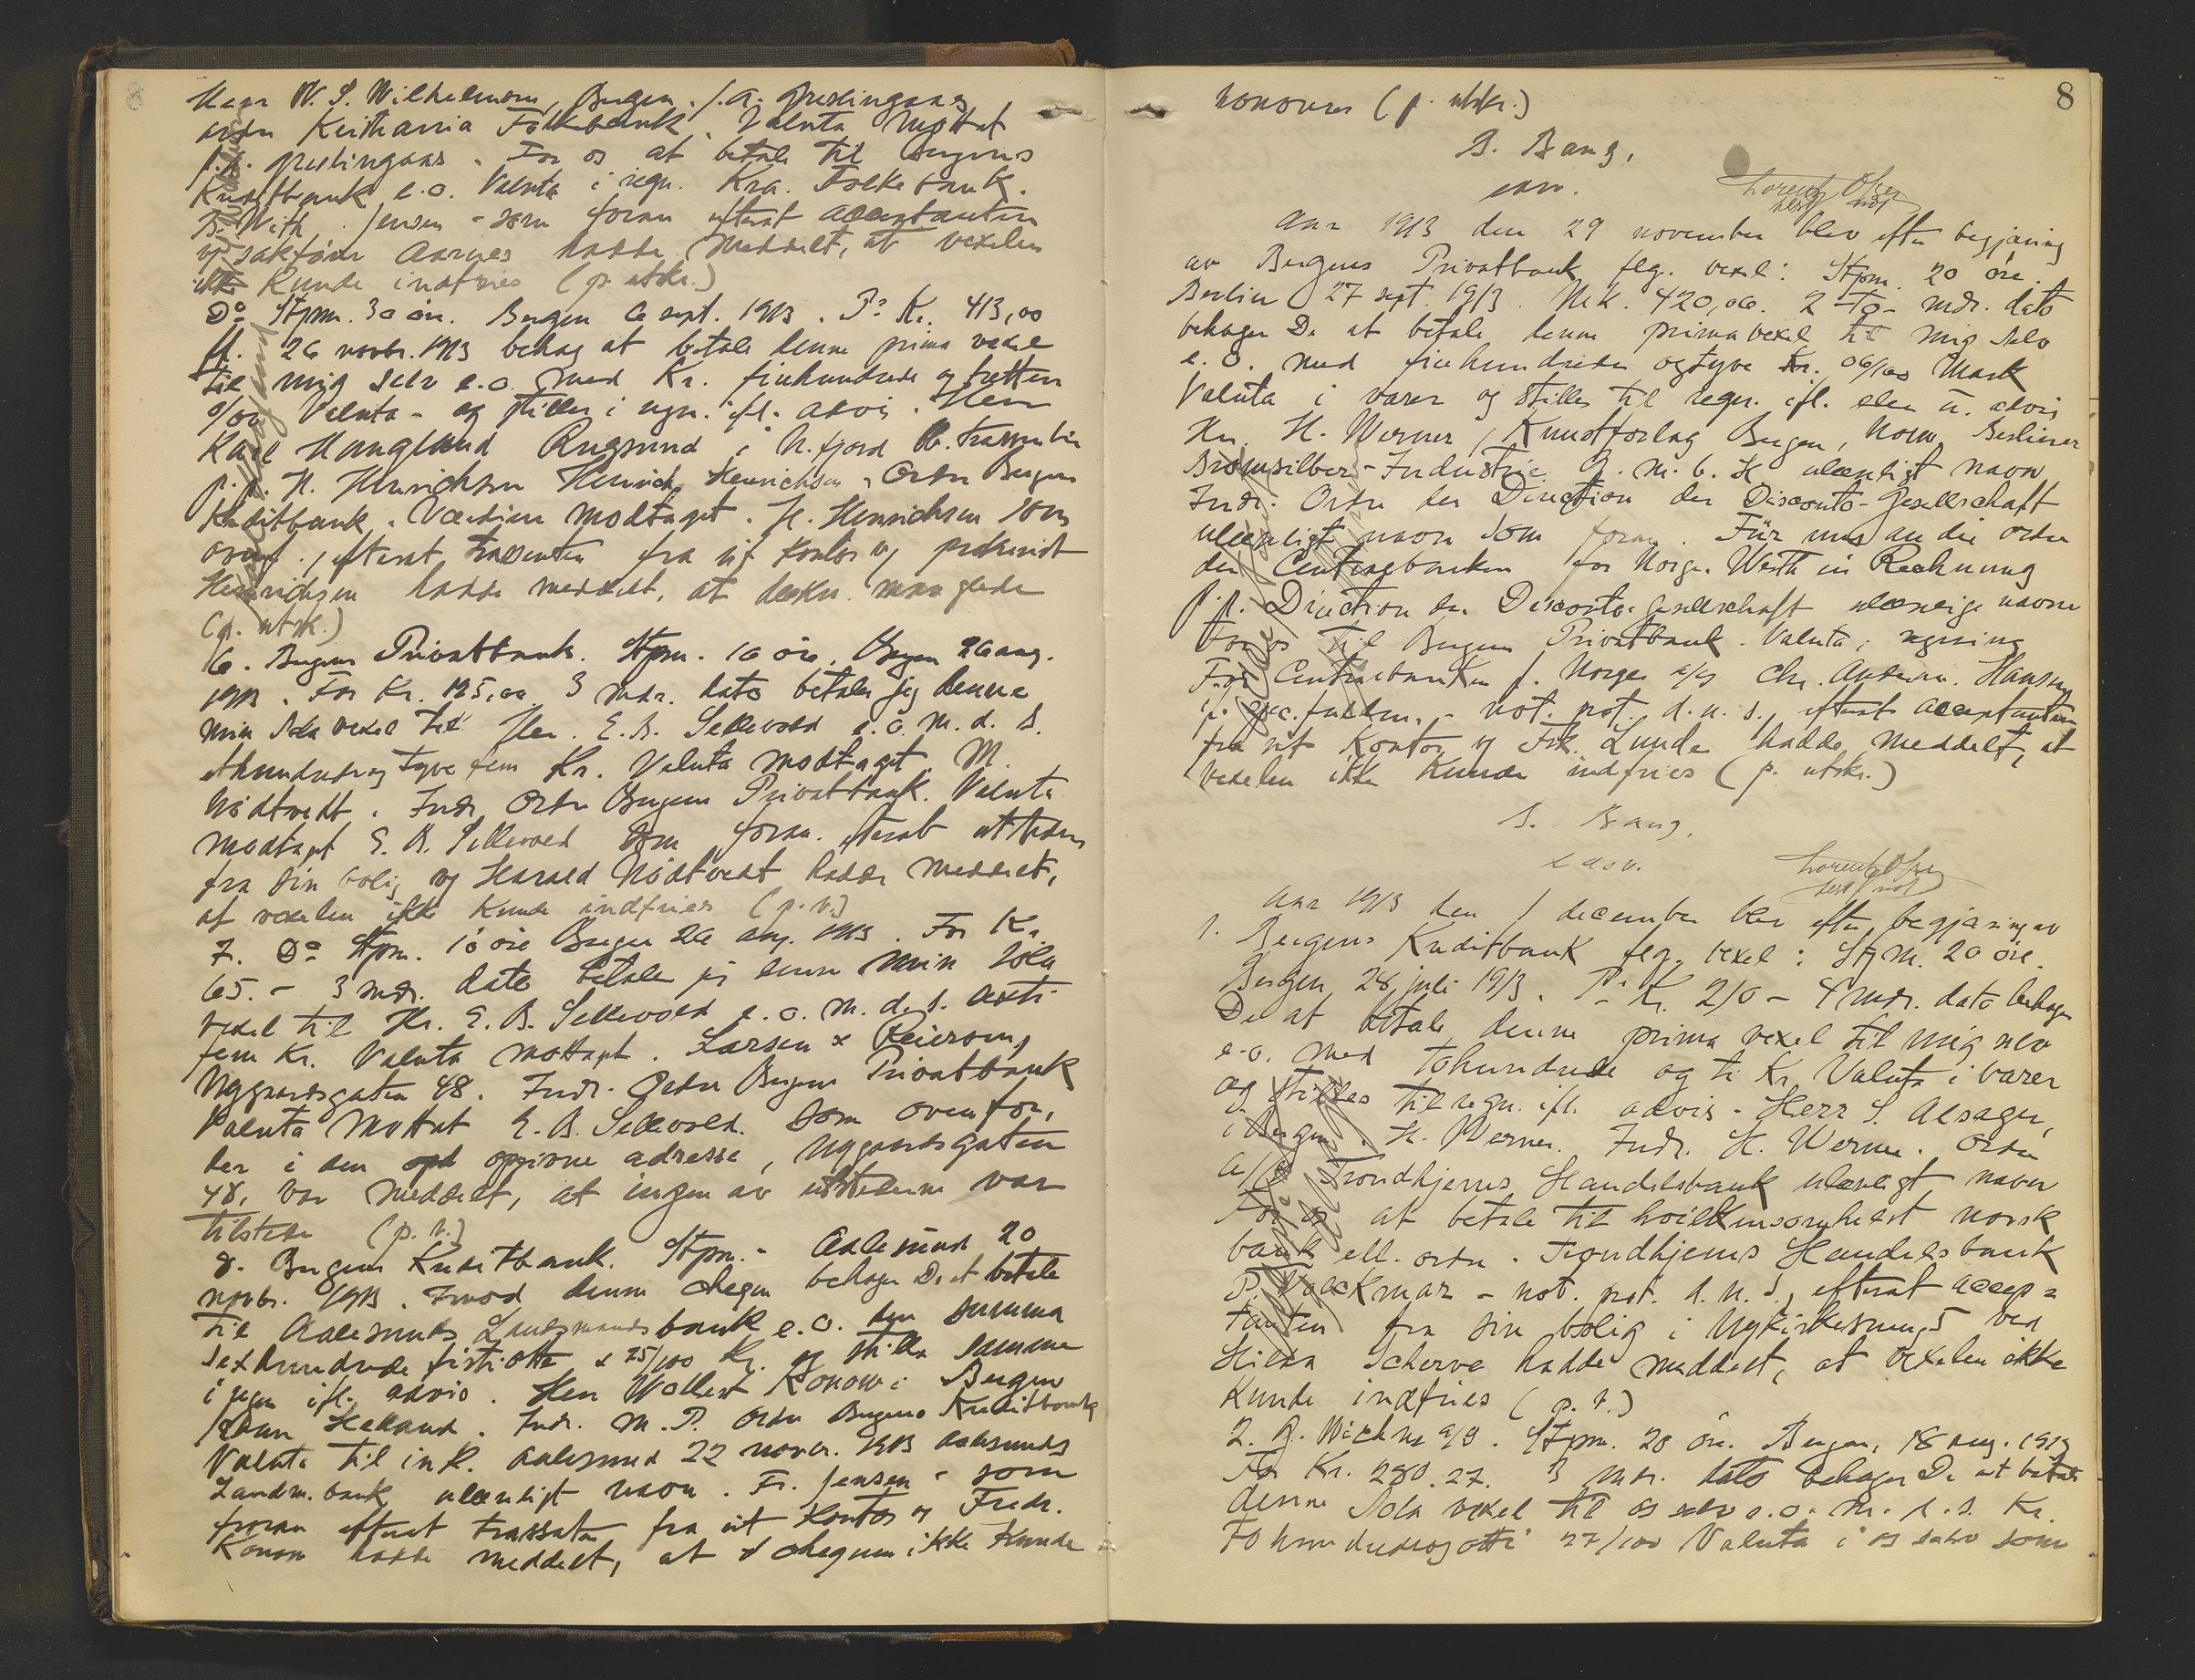 Herr W. S. Wilhelmsen, Bergen. J. A. Greslingaas
ordre Kristiania Folkebank. Valuta Mottat
J. A. Greslingaas. For os at betale til Bergens
Kreditbank e.o. Valuta i regn. Kra. Folkebank.
B. With. Jensen - som foran efterat acceptanten
ved sakfører Aarnes hadde meddelt, at vexelen
ikke kunde indfries (p. utskr.)
Do Stpm. 30 øre. Bergen 6 sept. 1913. Pr Kr. 413,00
pr. 26 novbr. 1913 behag at betale denne prima vexel
til mig selv e.o. med Kr. firehundrede og tretten
0/00 Valuta - og stilles i regn. ifl. advis. Herr
Karl Haugland Rugsund i N.fjord
p.p. H. Henrichsen Henrich Henrichsen. Ordre Bergens
Kreditbank. Værdien modtaget. H. Henrichsen som
ovenf., efterat trassenten fra sit kontor og prokurist
Henrichsen hadde meddelt, at dækn. manglede
(p. utsk.)
6. Bergens Privatbank. Stpm. 10 øre. Bergen 26 aug.
1913. For Kr. 125,00 3 mdr. dato betaler jeg denne
min sola vexel til Herr. E. B. Sellevold e.o. m. d. S.
ethundredeog tyve fem Kr. Valuta modtaget. M.
Nödtvedt. Indr. Ordre Bergens Privatbank. Valuta
modtaget E. B. Sellevold som foran. efterat utstederen
fra sin bolig og Harald Nödtvedt hadde meddelt,
at vexelen ikke kunde indfries (p. u.)
7. Do Stpm. 10 øre Bergen 26 aug. 1913. For Kr.
65.- 3 mdr. dato betaler jeg denne min sola
vexel til Hr. E. B. Sellevold e.o. m. d. s. sexti
fem Kr. Valuta mottaget. Larsen & Reierson,
Nygaardsgaten 48. Indr. Ordre Bergens Privatbank
Valuta Mottat E. B. Sellevold. som ovenfor,
der i den opd opgivne adresse, Nygaardsgaten
48, var meddelt, at ingen av utstederne var
tilstede (p. u.)
8. Bergens Kreditbank. Stpm. - Aalesund 20
novbr. 1913. Imod denne cheque behager De at betale
til Aalesunds Landmandsbank e.o. den summa
sexhundrede firtiotte & 75/100 Kr. og stille samme
i regn ifl. advis. Herr Wollert Konow i Bergen
Helland. Indr. M. P. Ordre Bergens Kreditbank
Valuta til ink. Aalesund 22 novbr. 1913 Aalesunds
Landm. bank ulæseligt navn. Fr. Jensen - som
foran efterat trassaten fra sit kontor og Fredr.
Konow hadde meddelt, at chequen ikke kunde
8
honoreres (p. utskr.)
B. Bang.
Lorentz Olsen
test not
Aar 1913 den 29 november blev efter begjæring
av Bergens Privatbank flg. vexel: Stpm. 20 øre.
Berlin 27 sept. 1913. Mk. 420,06. 2 - To - mdr. dato
behager De at betale denne prima vexel til mig selv
e. o. med firehundrede ogtyve Kr. 06/100 Mark
Valuta i varer og stilles til regn. ifl. eller u. advis
Hr. H. Werner, Kunstforlag Bergen, Norw. Berliner
Bromsilber-Industrie G. m. b. H ulæseligt navn
Indr. Ordre der Direction der Disconto-Gesellschaft
ulæseligt navn som foran. Für uns an die ordre
der Centralbanken for Norge. Werth in Rechnung
p.p. Direction der Disconto-Gesellschaft ulæselige navne
For os til Bergens Privatbank. Valuta i regning
For Centralbanken f. Norge a/s Chr. Andersen. Hansen
not. prot. d. n. s., efterat acceptanten
fra sit Kontor og Frk. Lunde hadde meddelt, at
vexelen ikke kunde indfries (p. utskr.)
B. Bang.
Lorentz Olsen
test not
Aar 1913 den 1 december blev efter begjæring av
1. Bergens Kreditbank flg. vexel: Stpm. 20 øre.
Bergen 28 juli 1913. Pr Kr. 210 - 4 mdr. dato behager
De at betale denne prima vexel til mig selv
e.o. med tohundrede og ti Kr. Valuta i varer
og stilles til regn. ifl. advis. Herr S. Alsager,
i Bergen. H. Werner. Indr. H. Werner. Ordre
A/S Trondhjems Handelsbank ulæseligt navn
For os at betale til hvilkensomhelst norsk
bank ell. ordre. Trondhjems Handelsbank
P. Volckmar - not. prot. d. n. s., efterat accep=
tanten fra sin bolig i Nykirkesmug 5 ved
Hilda Scherve hadde meddelt, at vexelen ikke
kunde indfries (p. u.)
2. G. Wiehn a/s. Stpm. 20 øre. Bergen, 18 aug. 1913
For Kr. 280.27. 3 mdr. dato behager De at betale
denne Sola vexel til os selv e.o. m. d. s. Kr.
Tohundredeogotti 27/100 Valuta i os selv som